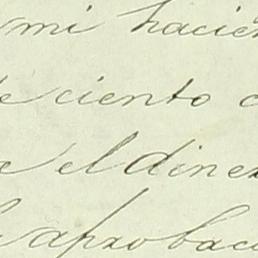 mi hacien
e ciento c
e el diner
aprobaci